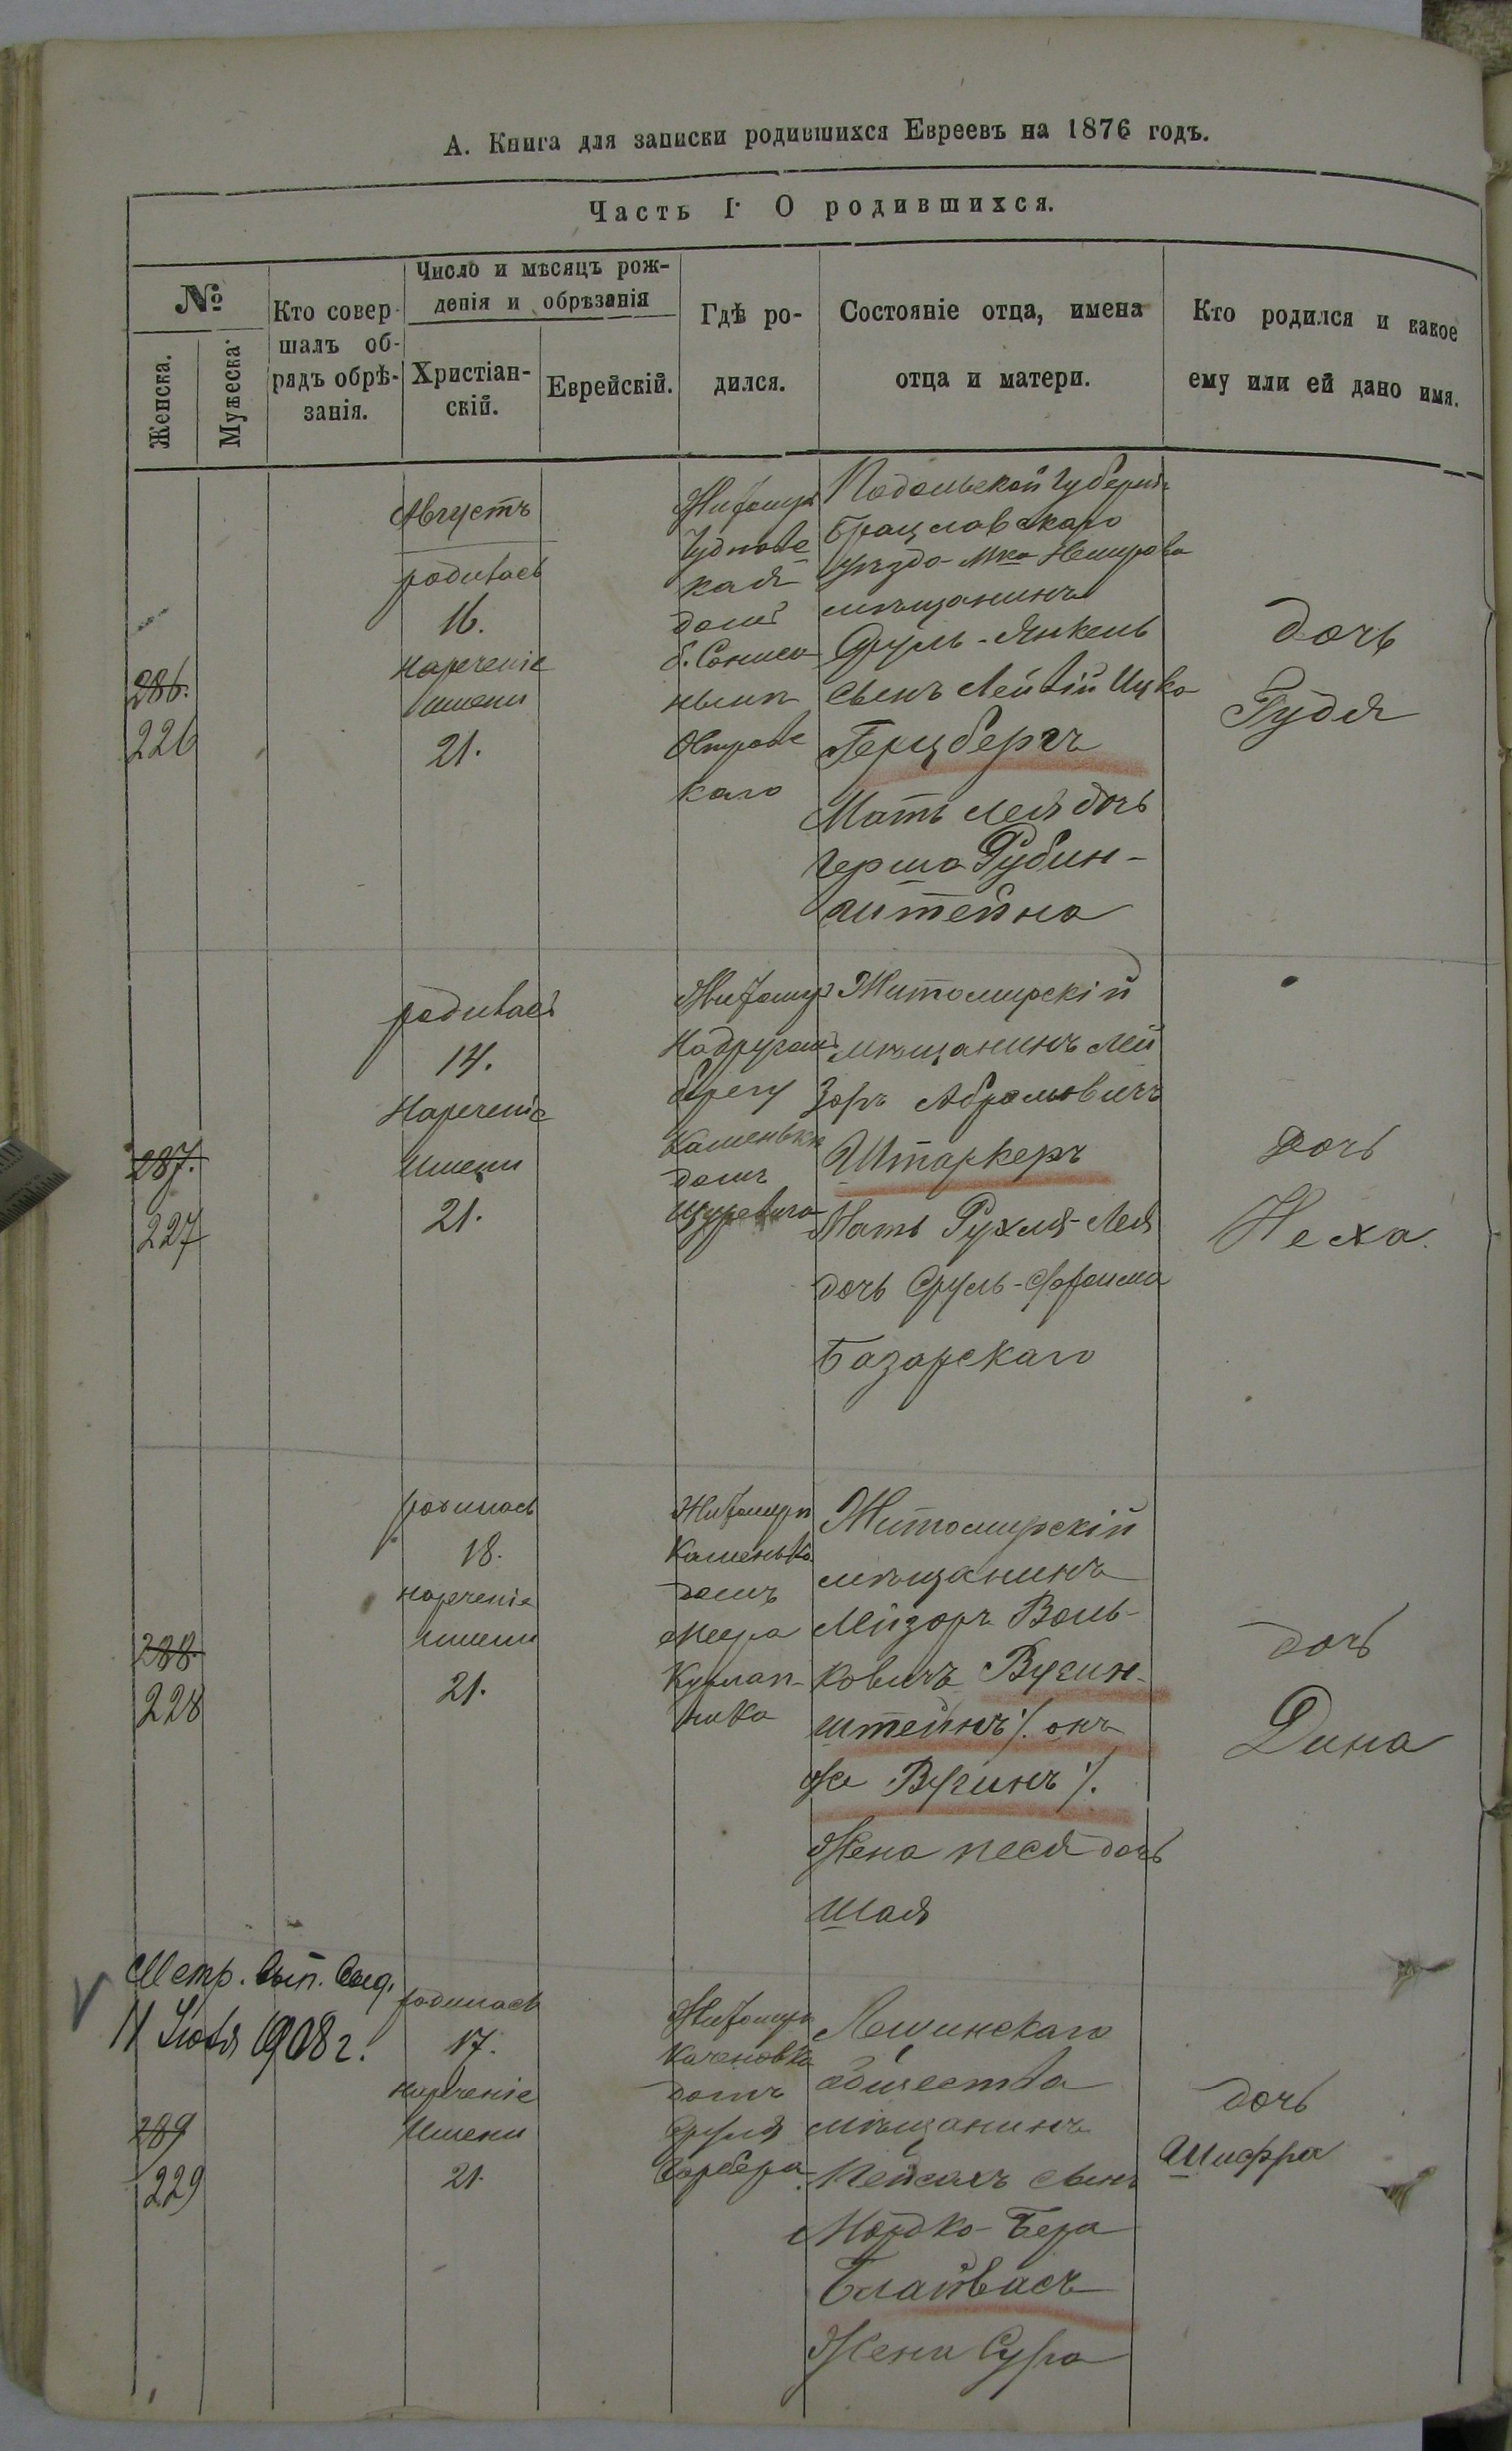 А. Книга для записки родившихся Евреевъ на 1876 годъ.
Часть I О родившихся.
№
Женска.
Мужеска
Кто совер-
шалъ об-
рядъ обрѣ-
занія.
Число и мѣсяцъ рож-
денія и обрѣзанія
Христіан-
скій.
Еврейскій.
Гдѣ ро-
дился.
Состояніе отца, имена
отца и матери.
Кто родился и какое
ему или ей дано имя.
286.
226
Августъ
родилась
16.
Нареченіе
имени
21.
Житомиръ
Чудновс
кая
домъ
Островс
каго
Подольской Губерніи
Брацлавскаго
уѣзда Мка Немирова
мѣщанинъ
Сруль-Янкель
сынъ Лейвій Ицко
Герцбергъ
Мать Лея дочь
Герша Рубин-
штейна
дочь
Гудя
287.
227
родилась
14.
Нареченіе
Имени
21.
Житомир
На другомъ
берегу
Каменьки
домъ
Щуревича
Житомирскій
мѣщанинъ Лей
Зоръ Абрамовичъ
Штаркеръ
Мать Рухля-Лея
дочь Сруль-
Базарскаго
дочь
Неха.
288.
228
родилась
18.
нареченіе
имени
21.
Житомиръ
Каменька
домъ
Меера
Житомирскій
мѣщанинъ
Лейзоръ Воль-
ковичъ Вугин-
штейнъ /. онъ
же Вугинъ /.
Жена песя дочь
Шая
дочь
Дина
Метр. вып. выд.
11 Іюля 1908 г.
289
229
родилась
17.
нареченіе
Имени
21.
Житомиръ
Каченовка
домъ
Сруля
Гарбера
общества
мѣщанинъ
Пейсахъ сынъ
Мордко-Бера
Блайвасъ
Жена Сура
дочь
Шифра